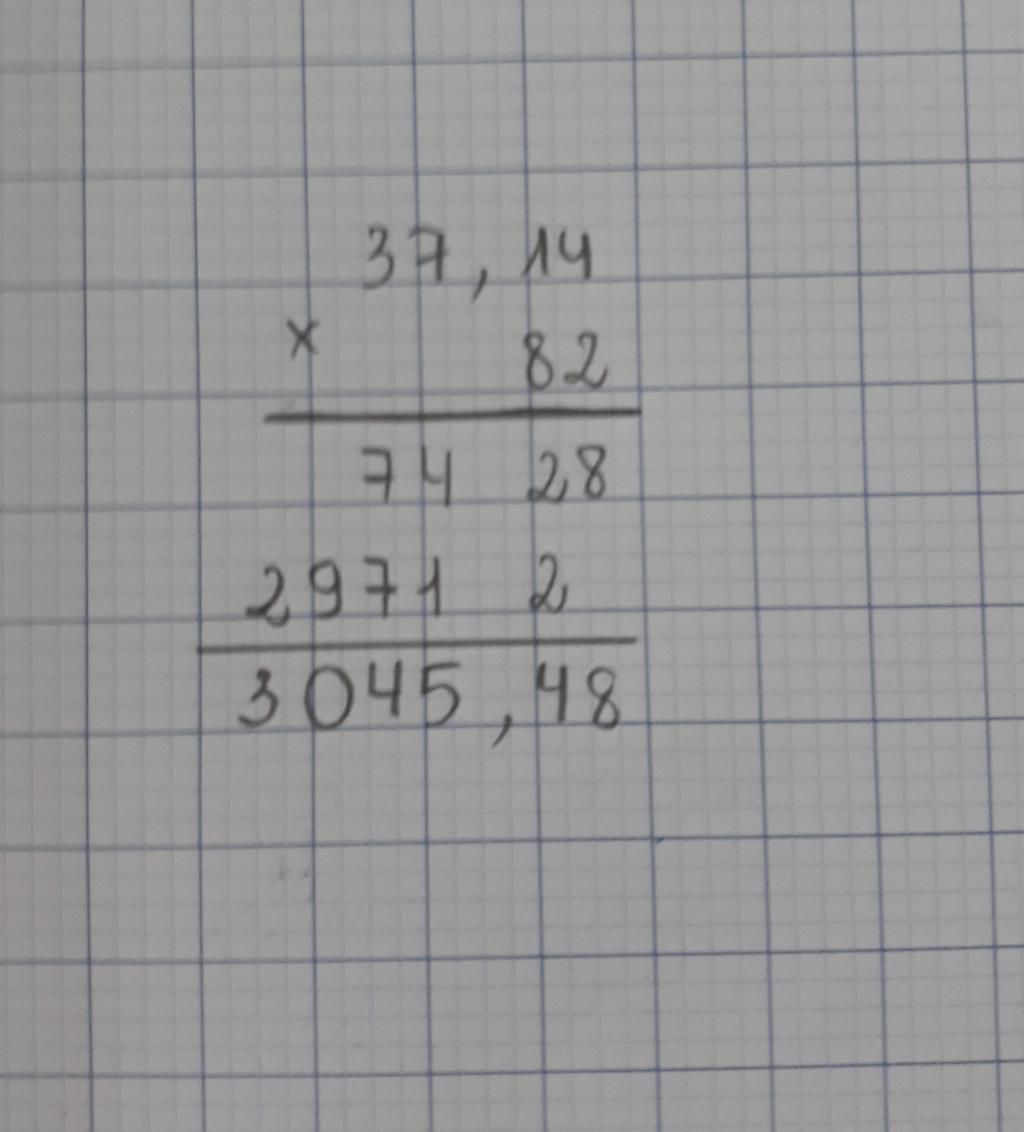 37,14
× 82
74 28
2971 2
3045,48